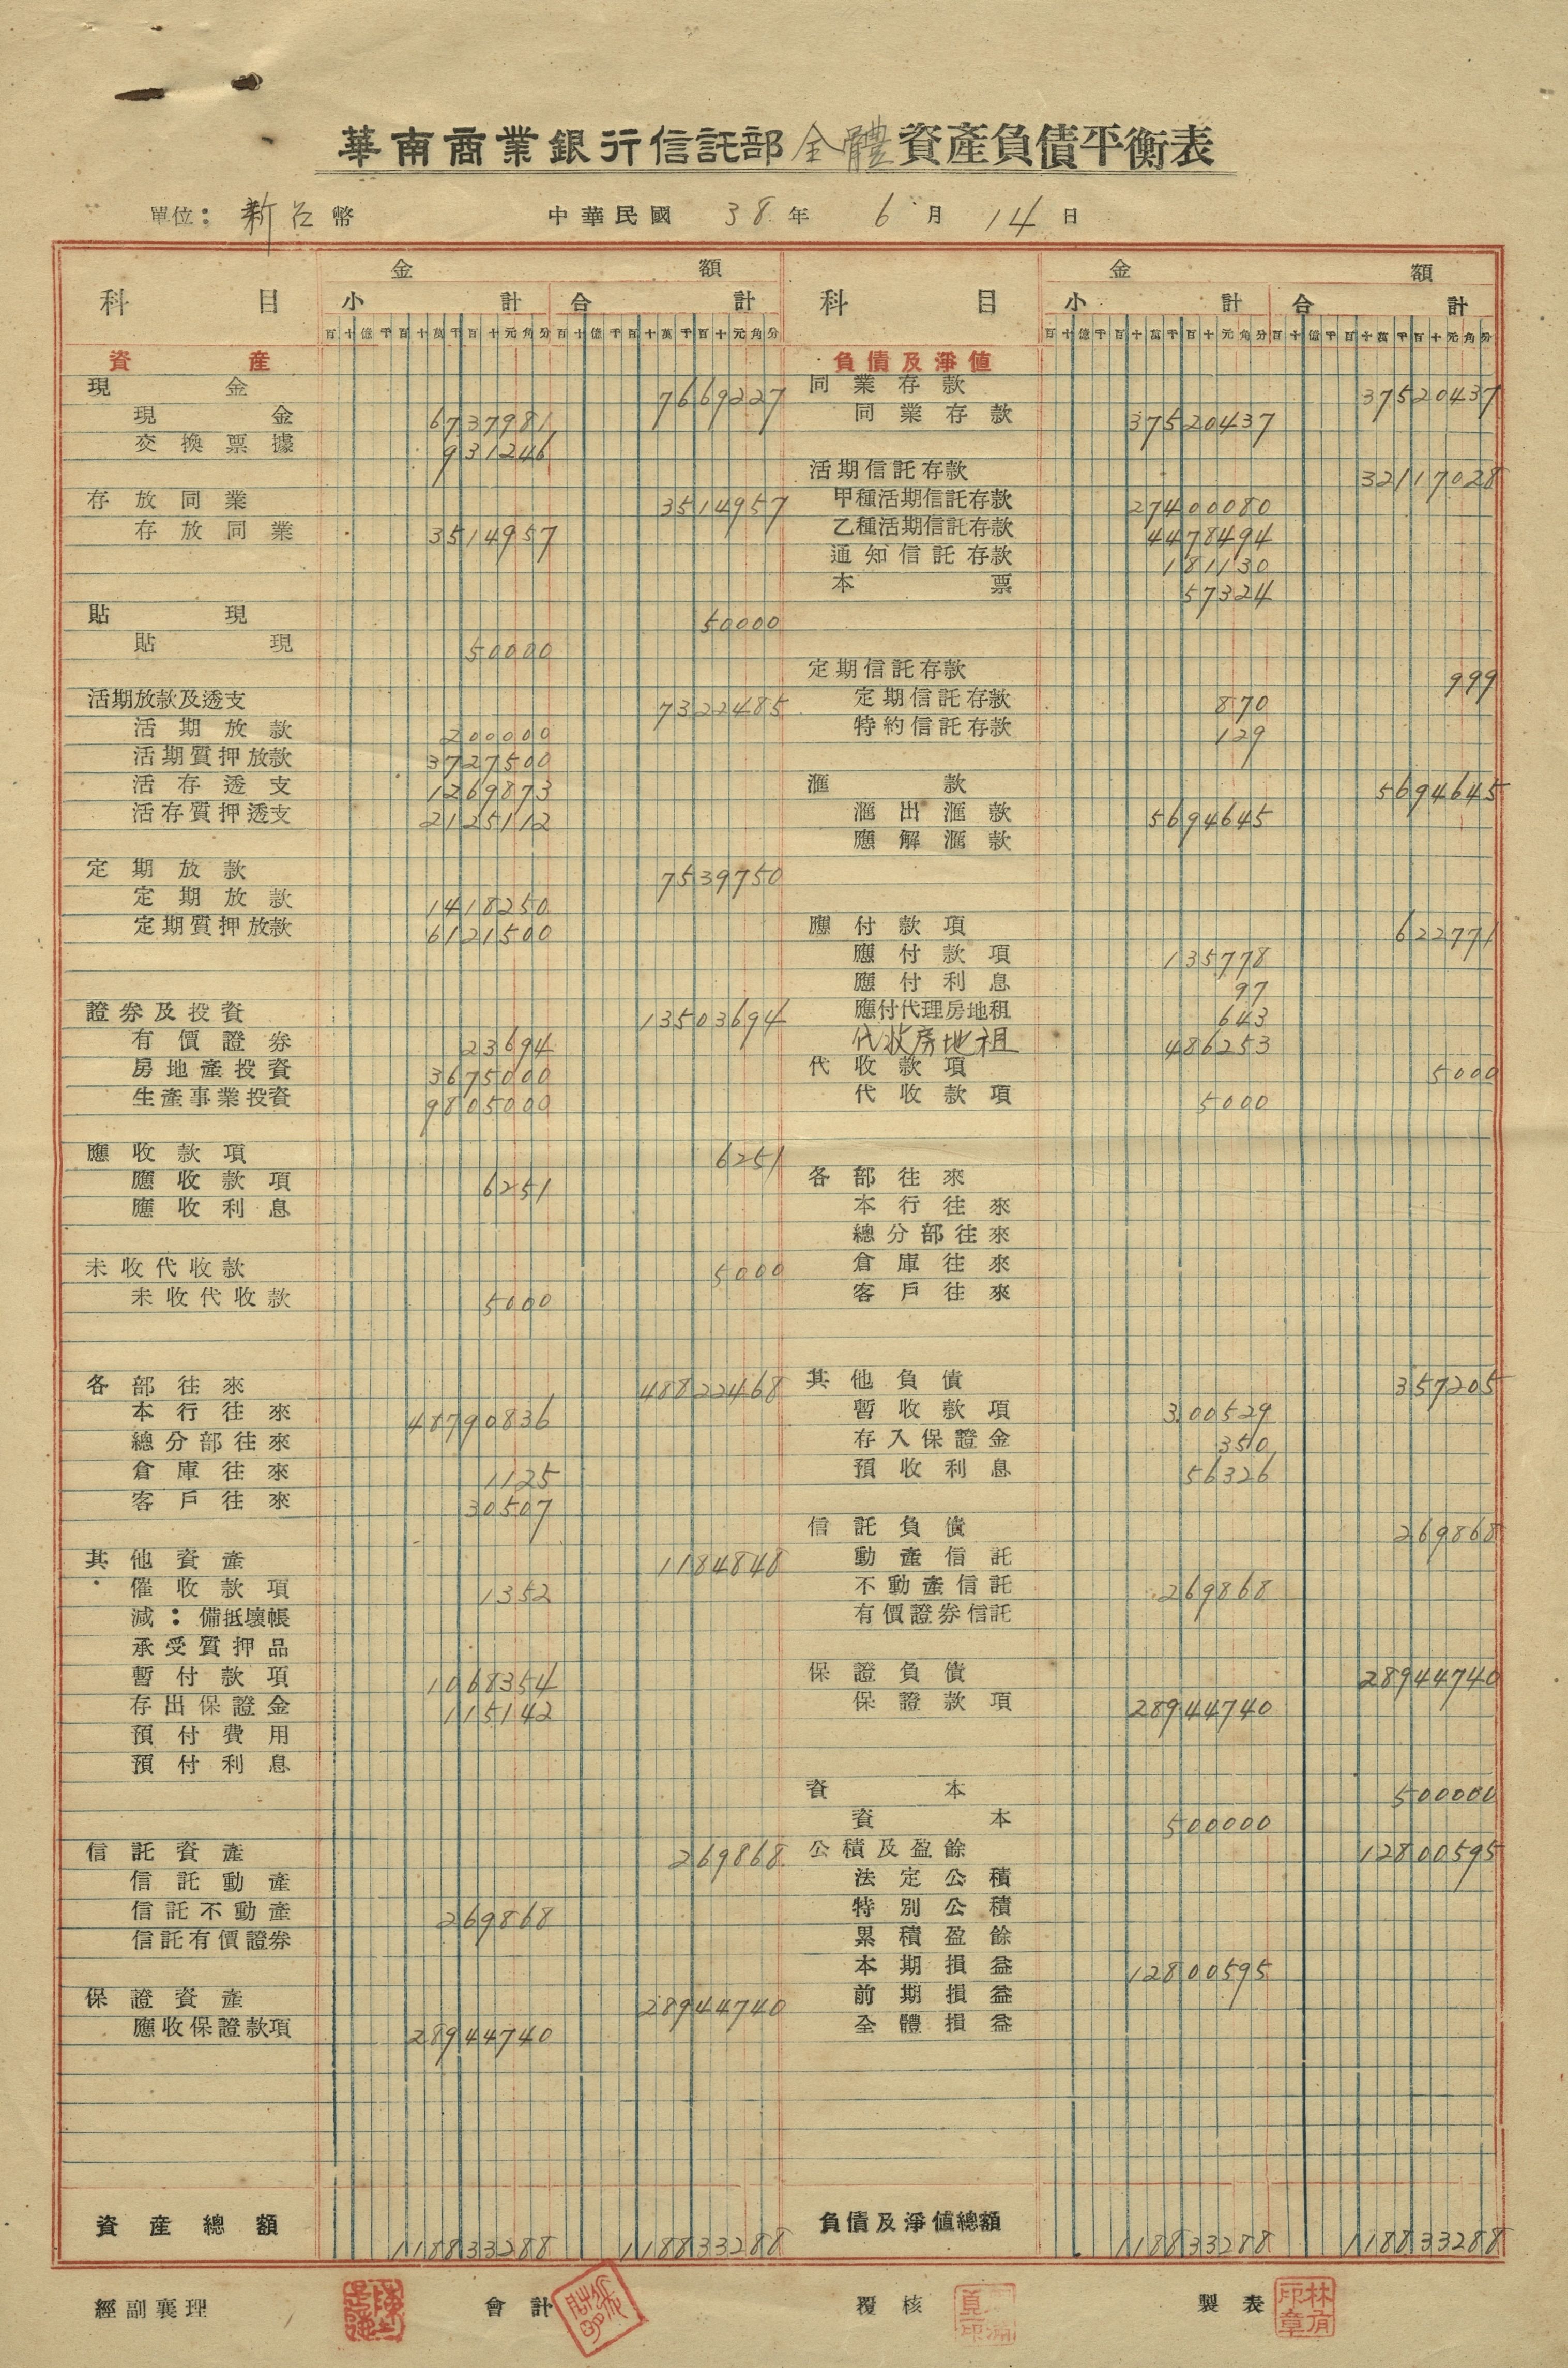 華南商業銀行信託部全體資產負債平衡表
單位：新台幣 中華民國 38 年 6 月 14 日
科目 金額 科目 金額
小計 合計 小計 合計
百十億千百十萬千百十元角分 百十億千百十萬千百十元角分 百十億千百十萬千百十元角分 百十億千百十萬千百十元角分
資產
現金 7669227
現金 6737981
交換票據 931246
存放同業 3514957
存放同業 3514957
貼現 50000
貼現 50000
活期放款及透支 7322485
活期放款 200000
活期質押放款 3727500
活存透支 1269873
活存質押透支 2125112
定期放款 7539750
定期放款 1418250
定期質押放款 6121500
證券及投資 13503694
有價證券 23694
房地產投資 3675000
生產事業投資 9805000
應收款項 6251
應收款項 6251
應收利息
未收代收款 5000
未收代收款 5000
各部往來 48822468
本行往來 48790836
總分部往來
倉庫往來 1125
客戶往來 30507
其他資產 1184848
催收款項 1352
減：備抵壞帳
承受質押品
暫付款項 1068354
存出保證金 115142
預付費用
預付利息
信託資產 269868
信託動產
信託不動產 269868
信託有價證券
保證資產 28944740
應收保證款項 28944740
資產總額 118833288 118833288
負債及淨值
同業存款 37520437
同業存款 37520437
活期信託存款 32117028
甲種活期信託存款 27400080
乙種活期信託存款 4478494
通知信託存款 181130
本票 57324
定期信託存款 999
定期信託存款 870
特約信託存款 129
滙款 5694645
滙出滙款 5694645
應解滙款
應付款項 622771
應付款項 135778
應付利息 97
應付代理房地租 643
代收房地租 486253
代收款項 5000
代收款項 5000
各部往來
本行往來
總分部往來
倉庫往來
客戶往來
其他負債 357205
暫收款項 300529
存入保證金 350
預收利息 56326
信託負債 269868
動產信託
不動產信託 269868
有價證券信託
保證負債 28944740
保證款項 28944740
資本 500000
資本 500000
公積及盈餘 12800595
法定公積
特別公積
累積盈餘
本期損益 12800595
前期損益
全體損益
負債及淨值總額 118833288 118833288
經副襄理 會計 覆核 製表
林
印章